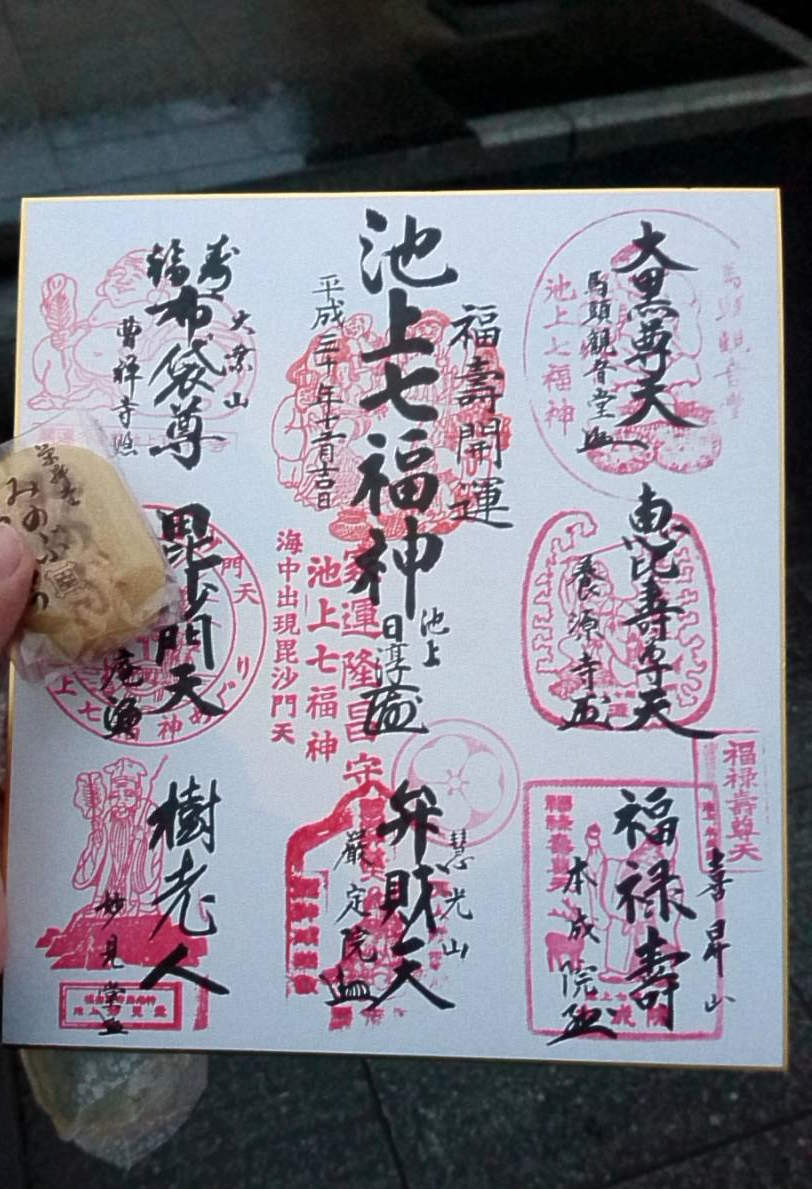 大黒尊天
馬頭観音堂
池上七福神
馬頭観音堂
福壽開運
池上七福神
平成三十年吉日
池上
日淳
寿福
布袋尊
曹禅寺
恵比寿尊天
養源寺
毘沙門天
門天
めぐり
庵
家運隆昌守
池上七福神
海中出現毘沙門天
福禄寿尊天
喜昇山
福禄壽
本成院
慧光山
弁財天
厳定院
樹老人
妙見堂
みのぶ